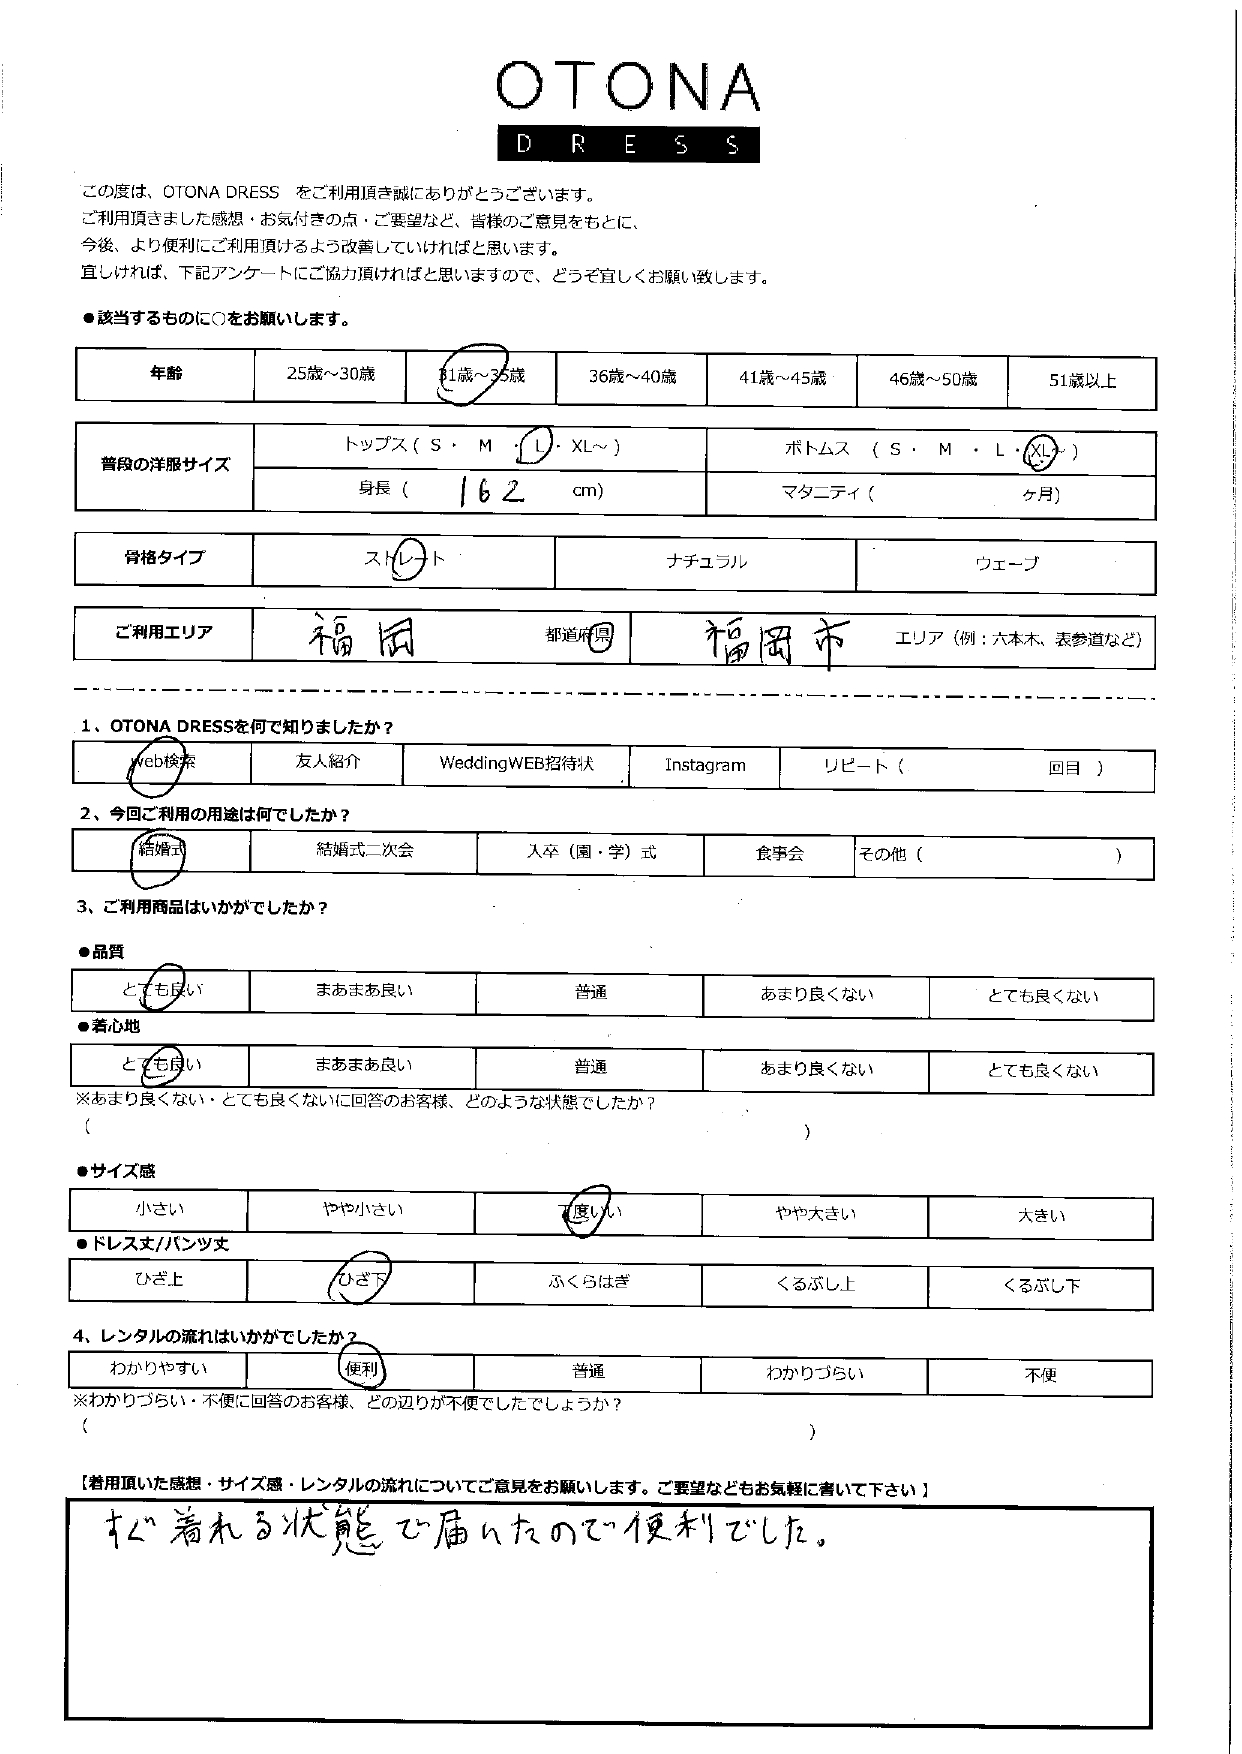 OTONA
DRESS
この度は、OTONA DRESS　をご利用頂き誠にありがとうございます。
ご利用頂きました感想・お気付きの点・ご要望など、皆様のご意見をもとに、
今後、より便利にご利用頂けるよう改善していければと思います。
宜しければ、下記アンケートにご協力頂ければと思いますので、どうぞ宜しくお願い致します。
●該当するものに○をお願いします。
年齢 25歳～30歳 31歳～35歳 36歳～40歳 41歳～45歳 46歳～50歳 51歳以上
普段の洋服サイズ トップス ( S ・ M ・ L ・ XL～ ) ボトムス ( S ・ M ・ L ・ XL～ )
身長 ( 162 cm) マタニティ ( ケ月)
骨格タイプ ストレート ナチュラル ウェーブ
ご利用エリア 福岡 都道府県 福岡市 エリア（例：六本木、表参道など）
1、OTONA DRESSを何で知りましたか？
web検索 友人紹介 WeddingWEB招待状 Instagram リピート ( 回目 )
2、今回ご利用の用途は何でしたか？
結婚式 結婚式二次会 入卒（園・学）式 食事会 その他 ( )
3、ご利用商品はいかがでしたか？
●品質
とても良い まあまあ良い 普通 あまり良くない とても良くない
●着心地
とても良い まあまあ良い 普通 あまり良くない とても良くない
※あまり良くない・とても良くないに回答のお客様、どのような状態でしたか？
( )
●サイズ感
小さい やや小さい 丁度いい やや大きい 大きい
●ドレス丈/パンツ丈
ひざ上 ひざ下 ふくらはぎ くるぶし上 くるぶし下
4、レンタルの流れはいかがでしたか？
わかりやすい 便利 普通 わかりづらい 不便
※わかりづらい・不便に回答のお客様、どの辺りが不便でしたでしょうか？
( )
【着用頂いた感想・サイズ感・レンタルの流れについてご意見をお願いします。ご要望などもお気軽に書いて下さい】
すぐ着れる状態で届いたので便利でした。